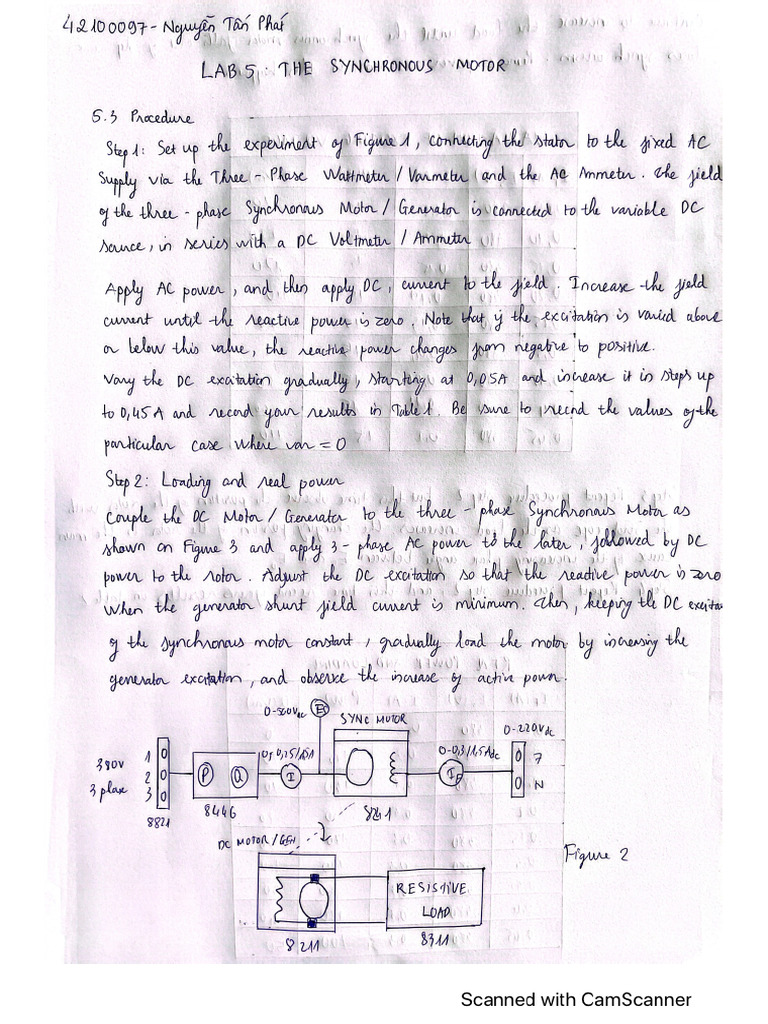 42100097 - Nguyễn Tấn Phát
LAB 5 : THE SYNCHRONOUS MOTOR
5.3 Procedure
Step 1: Set up the experiment of Figure 1, connecting the stator to the fixed AC
Supply via the Three - Phase Wattmeter / Varmeter and the AC Ammeter. The field
of the three - phase Synchronous Motor / Generator is connected to the variable DC
source, in series with a DC Voltmeter / Ammeter
Apply AC power, and then apply DC, current to the field. Increase the field
current until the reactive power is zero. Note that if the excitation is varied above
or below this value, the reactive power changes from negative to positive.
Vary the DC excitation gradually, starting at 0,05A and increase it in steps up
to 0,45A and record your results in Table 1. Be sure to record the values of the
particular case where var = 0
Step 2: Loading and real power
Couple the DC Motor / Generator to the three - phase Synchronous Motor as
shown on Figure 3 and apply 3 - phase AC power to the later, followed by DC
power to the rotor. Adjust the DC excitation so that the reactive power is zero
when the generator shunt field current is minimum. Then, keeping the DC excita
of the synchronous motor constant, gradually load the motor by increasing the
generator excitation, and observe the increase of active power.
0-500Vac E1 SYNC MOTOR
0-220Vdc
380V
3 phase
1 0
2 0
3 0
P Q
I
0-0,3/1,5Adc
IF
0 7
0 N
8821
8446
8241
DC MOTOR / GEN
Figure 2
RESISTIVE
LOAD
8211
8311
Scanned with CamScanner